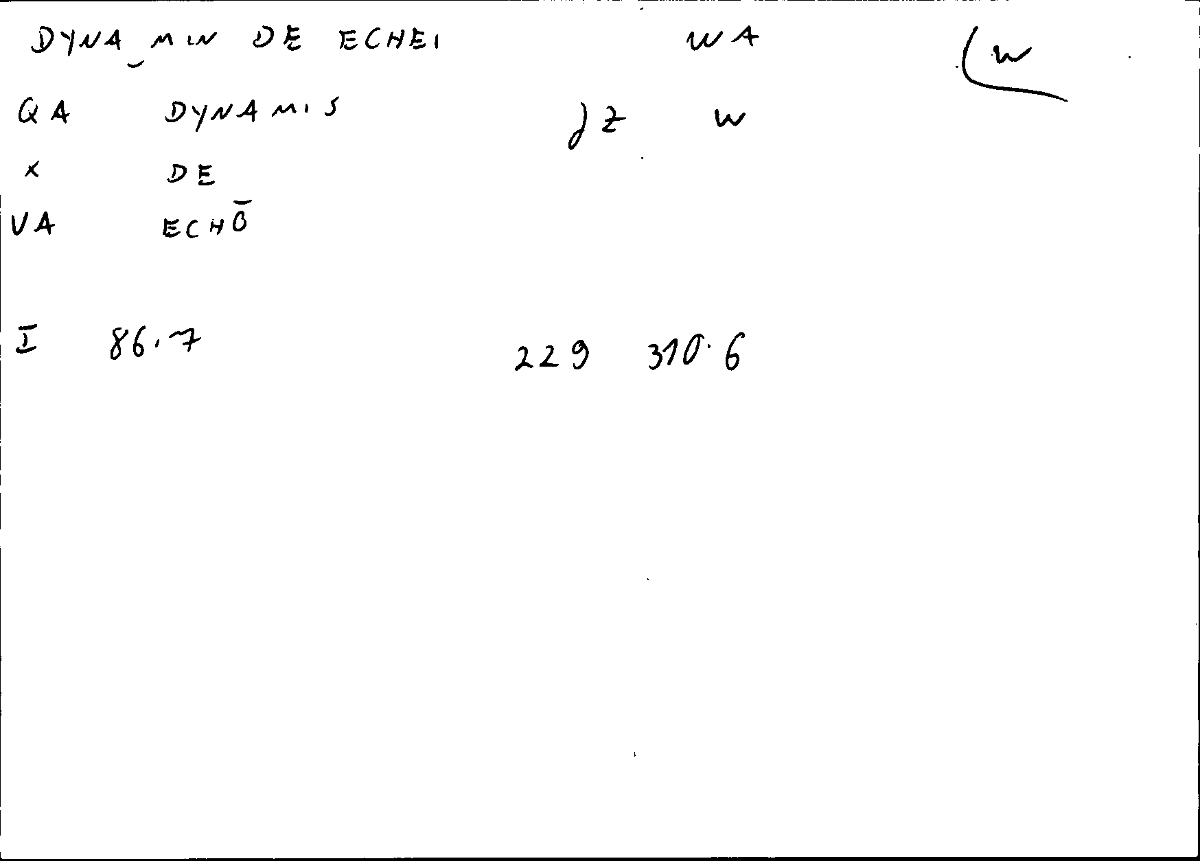 DYNA_MIN DE ECHEI WA W
QA DYNAMIS JZ W
X DE
VA ECHŌ
I 86.7 229 310.6